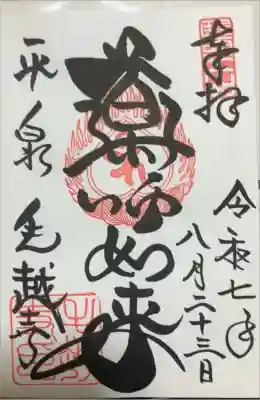 奉拝
令和七年
八月二十三日
薬師如来
平泉 毛越寺